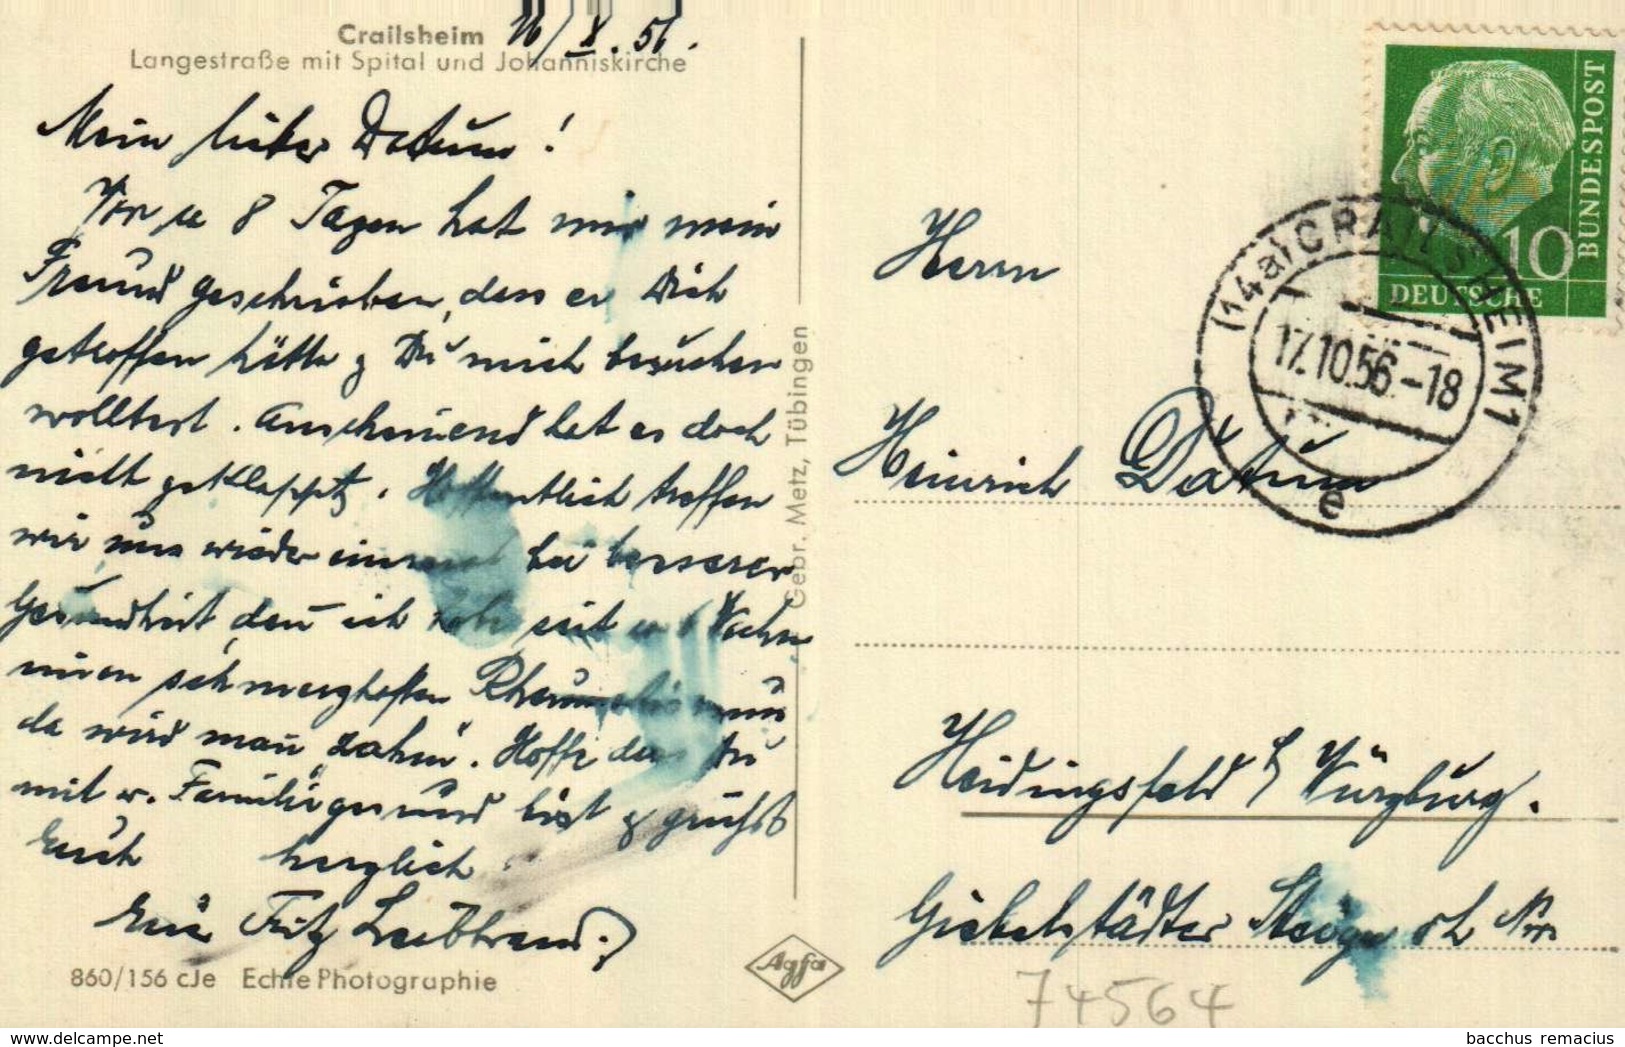 Crailsheim 16/X. 56.
Langestraße mit Spital und Johanniskirche
Mein lieber Datum!
Vor ca 8 Tagen hat mir mein
Freund geschrieben, dass er Dich
getroffen hätte & Du mich besuchen
wolltest. Anscheinend hat es doch
nicht geklappt. Hoffentlich treffen
wir uns wieder einmal bei besserer
Gesundheit, den ich habe seit 6 Wochen
einen schmerzhaften Rheumatismus
da wird man zahm. Hoffe dass Du
mit w. Familie gesund bist & grüsst
Euch herzlich
Euer Fritz Leibbrand
860/156 cJe Echte Photographie
Gebr. Metz, Tübingen
Agfa
DEUTSCHE BUNDESPOST
10
(14a) CRAILSHEIM 1
17.10.56-18
e
Herrn
Heinrich Datum
Heidingsfeld b/ Würzburg.
Giebelstädter Steige oh Nr.
74564
bacchus remacius